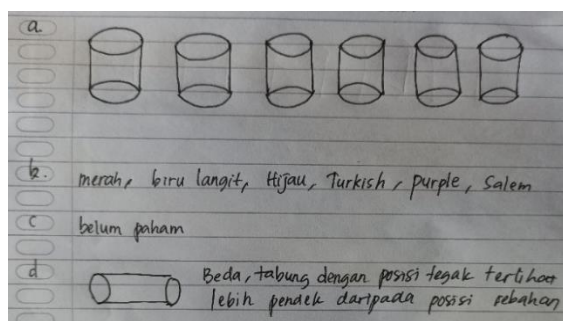 a
b. merah, biru langit, Hijau, Turkish, purple, Salem
c belum paham
d Beda, tabung dengan posisi tegak terlihat
lebih pendek daripada posisi rebahan